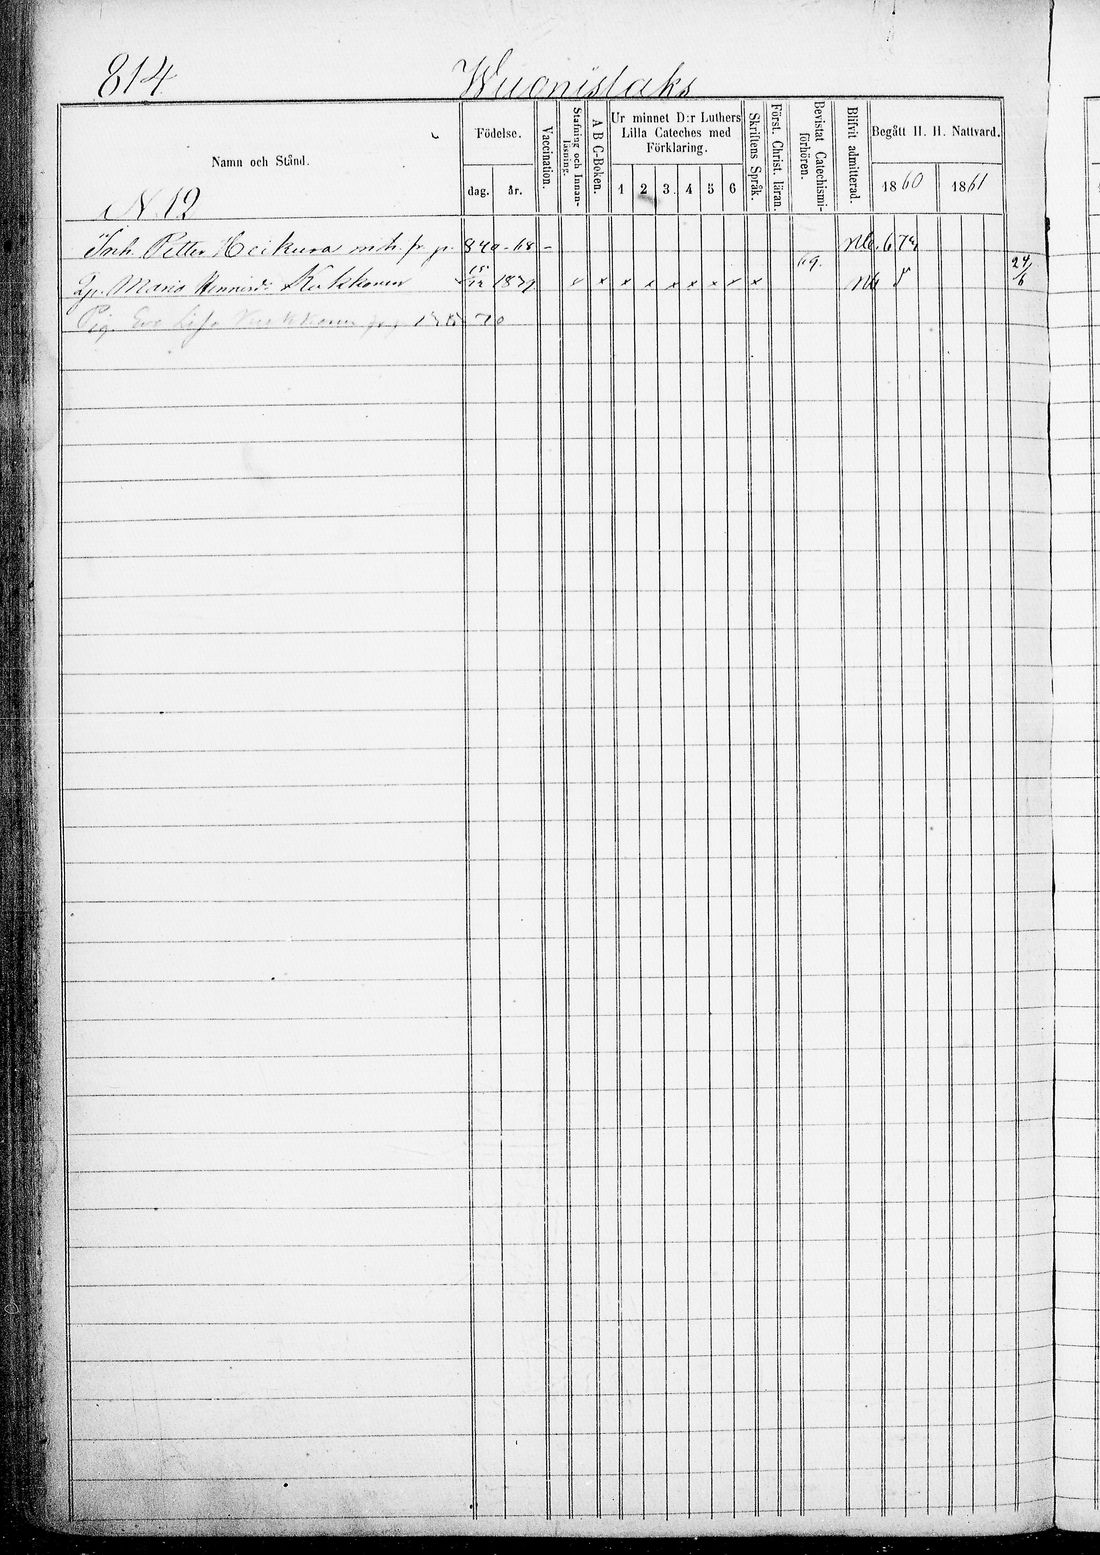 814 Wuonislaks
Namn och Stånd.
Födelse.
dag.
år.
Vaccination.
Stafning och Innan-
läsning.
A B C-Boken.
Ur minnet D:r Luthers
Lilla Cateches med
Förklaring.
1 2 3 4 5 6
Skriftens Språk.
Först. Christ. läran.
Bevistat Catechismi-
förhören.
Blifvit admitterad.
Begått H. H. Nattvard.
1860 1861
N. 12
Petter Heikura 840 - 68 -
69. 24/6
Maria Kukkonen 15/12 1839 v x x x x x x x x
Pig. Eva Lisa